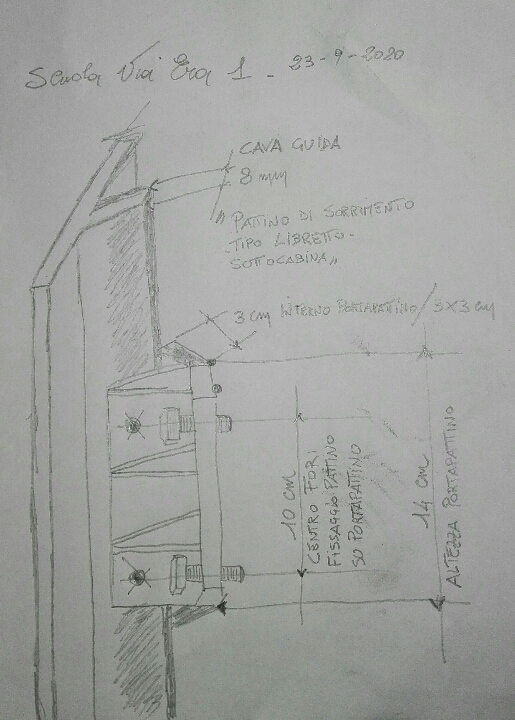 Scuola Via Era 1 - 23-9-2020
CAVA GUIDA
8 mm
" PATTINO DI SORRIMENTO
- TIPO LIBRETTO -
SOTTOCABINA "
3 cm INTERNO PORTAPATTINO / 3x3 cm
10 cm
CENTRO FORI
FISSAGGIO PATTINO
SU PORTAPATTINO
14 cm
ALTEZZA PORTAPATTINO